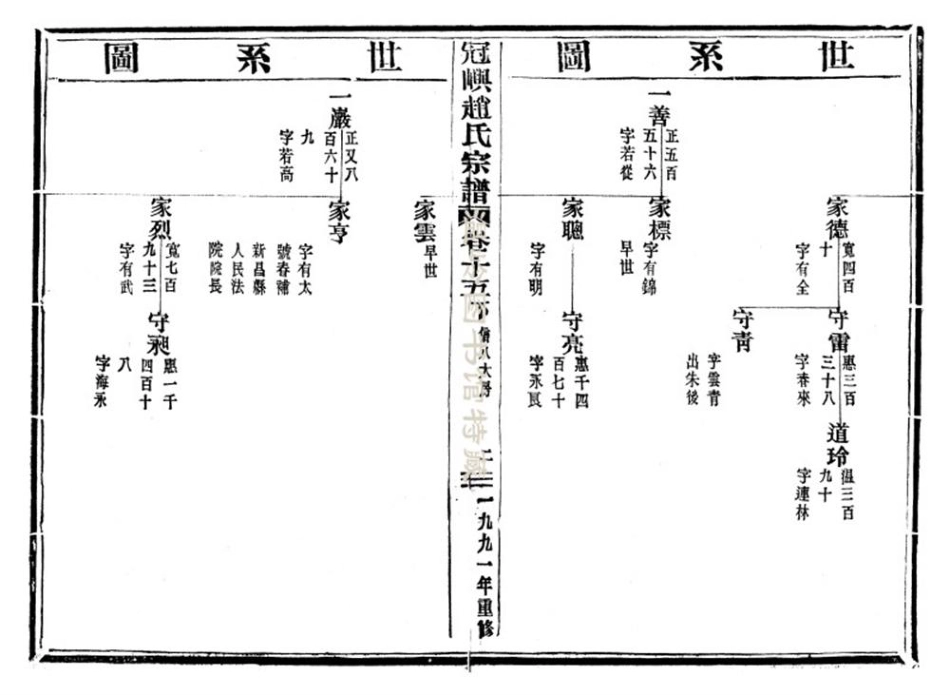 世系圖
一善
正五百
五十六
字若從
家德
寬四百
十
字有全
家標
字有錦
早世
家聰
字有明
家雲
早世
守雷
惠三百
三十八
字春來
守青
字雲青
出朱後
守亮
惠千四
百七十
字永良
道玲
溫三百
九十
字連林
冠嶼趙氏宗譜
卷十五
一九九一年重修
图书馆特藏
世系圖
一巖
正又八
百六十
九
字若高
家亨
字有太
號春蒲
新昌縣
人民法
院院長
家烈
寬七百
九十三
字有武
惠一千
四百十
八
字海永